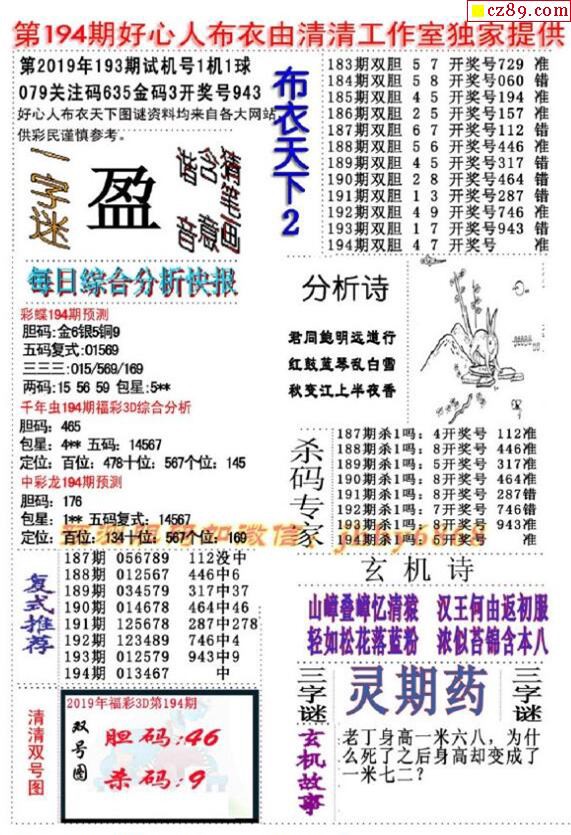 cz89.com
第194期好心人布衣由清清工作室独家提供
第2019年193期试机号1机1球
079关注码635金码3开奖号943
好心人布衣天下图谜资料均来自各大网站
供彩民谨慎参考。
一字迷
盈
每日综合分析快报
彩蝶194期预测
胆码:金6银5铜9
五码复式:01569
三三三:015/569/169
两码:15 56 59 包星:5**
千年虫194期福彩3D综合分析
胆码: 465
包星: 4** 五码: 14567
定位: 百位: 478十位: 567个位: 145
中彩龙194期预测
胆码: 176
包星: 1** 五码复式: 14567
定位: 百位: 134十位: 567个位: 169
复式推荐
187期 056789 112没中
188期 012567 446中6
189期 034579 317中37
190期 014678 464中46
191期 125678 287中278
192期 123489 746中4
193期 012579 943中9
194期 013467 中
清清双号图
2019年福彩3D第194期
双号图
胆码:46
杀码:9
布衣天下2
183期双胆 5 7 开奖号729 准
184期双胆 5 8 开奖号060 错
185期双胆 4 5 开奖号194 准
186期双胆 2 5 开奖号157 准
187期双胆 6 7 开奖号112 错
188期双胆 5 6 开奖号446 准
189期双胆 4 5 开奖号317 错
190期双胆 2 8 开奖号464 错
191期双胆 1 3 开奖号287 错
192期双胆 4 9 开奖号746 准
193期双胆 1 7 开奖号943 错
194期双胆 4 7 开奖号 准
分析诗
君同鲍明远道行
红鼓蓝琴乱白雪
秋变江上半夜香
杀码专家
187期杀1吗: 4开奖号 112准
188期杀1吗: 8开奖号 446准
189期杀1吗: 5开奖号 317准
190期杀1吗: 8开奖号 464准
191期杀1吗: 8开奖号 287错
192期杀1吗: 7开奖号 746错
193期杀1吗: 8开奖号 943准
194期杀1吗: 5开奖号 准
玄机诗
山嶂叠嶂忆清猿 汉王何由返初服
轻如松花落蓝粉 浓似苔锦含本八
三字谜
灵期药
三字谜
玄机故事
老丁身高一米六八,为什
么死了之后身高却变成了
一米七二?